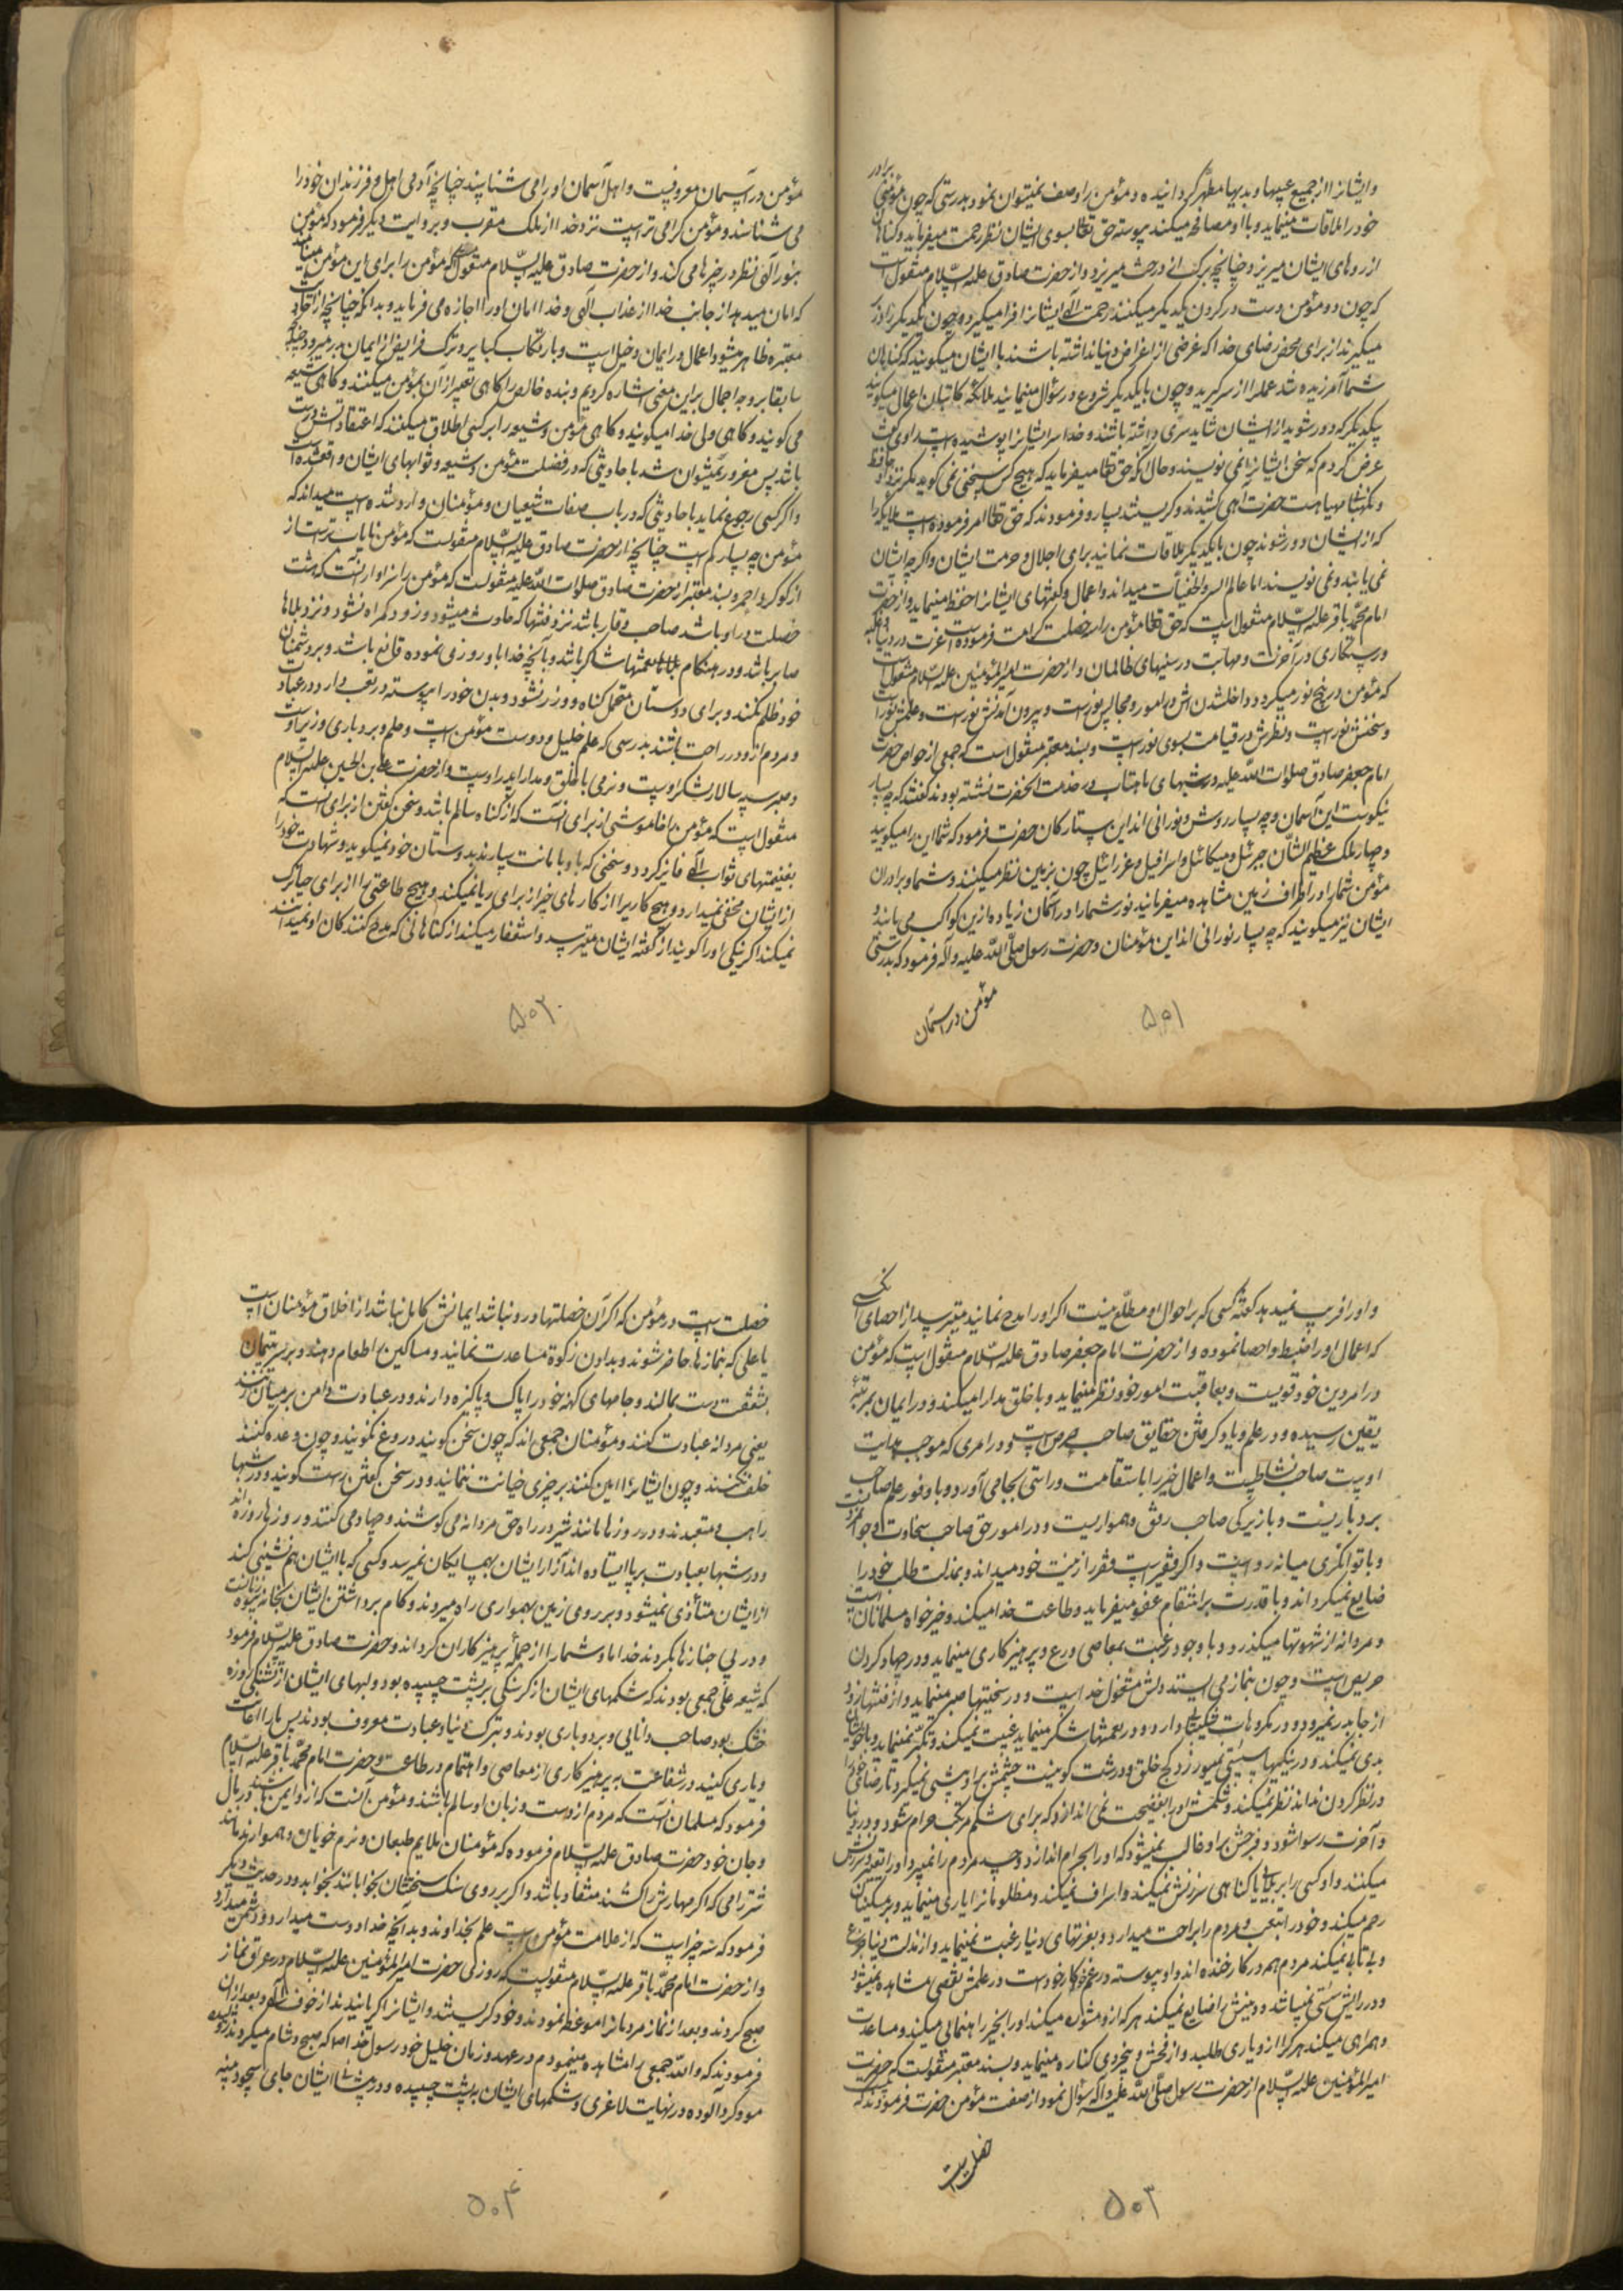 برادر
و ایشانرا از جمیع عیبها و بدیها مطهّر گردانیده و مؤمن را وصف نمیتوان نمود بدرستی که چون مؤمنی
خود را ملاقات مینماید و با او مصافحه میکند پیوسته حق تعالی بسوی ایشان نظر رحمت میفرماید و گناهان
از روهای ایشان میریزد چنانچه برک از درخت میریزد و از حضرت صادق علیه السّلام منقول است
که چون دو مؤمن دست در کردن یکدیگر میکنند رحمت الٓهی ایشانرا فرا میگیرد و چون یکدیگر را در بر
میگیرند از برای محض رضای خدا که غرضی از اغراض دنیا نداشته باشند با ایشان میگویند که گناهان
شما آمرزیده شد عمل را از سر گیرید و چون با یکدیگر شروع در سؤال مینمایند ملائکه کاتبان اعمال میگویند
بیکدیگر که دور شوید از ایشان شاید سرّی داشته باشند و خدا ستر ایشانرا پوشیده است راوی گفت
عرض کردم که سخن ایشانرا نمی نویسند و حال آنکه حق تعالی میفرماید که هیچ کس سخنی نمی گوید مگر نزد او حافظ
و نگهبانی مهیا هست حضرت آهی کشیدند و گریستند بسیار و فرمودند که حق تعالی امر فرموده است ملایکه را
که از ایشان دور شوند چون با یکدیگر ملاقات نمایند برای اجلال و حرمت ایشان و اگر چه ایشان
نمی یابند و نمی نویسند اما عالم السر و الخفیّات میداند و اعمال و گفتهای ایشانرا حفظ مینماید و از حضرت
امام محمّد باقر علیه السّلام منقول است که حق تعالی مؤمن را سه خصلت کرامت فرموده است عزت در دنیا و غلبه
و رستگاری در آخرت و مهابت در سینهای ظالمان و از حضرت امیر المؤمنین علیه السّلام منقول است
که مؤمن در پنج نور میگردد داخلشدن اش در امور و مجالس نور است و بیرون آمدنش نور است و علمش نور است
و سخنش نور است و نظرش در قیامت بسوی نور است و بسند معتبر منقول است که جمعی از خواص حضرت
امام جعفر صادق صلوات اللّه علیه در شبهای ماهتاب در خدمت آنحضرت نشسته بودند گفتند که چه بسیار
نیکوست این آسمان و چه بسیار روشن و نورانی اند این ستارگان حضرت فرمود که شما این را میگویید
و چهار ملک عظیم الشّان جبرئیل و میکائیل و اسرافیل و عزرائیل چون بزمین نظر میکنند و شما و برادران
مؤمن شما را در اطراف زمین مشاهده میفرمایند نور شما را در آسمان زیاده از این کواکب می یابند و
ایشان نیز میگویند که چه بسیار نورانی اند این مؤمنان و حضرت رسول صلّی اللّه علیه و آله فرمود که بدرستی
مؤمن در آسمان
۵۰۱
مؤمن در آسمان معروفست و اهل آسمان او را می شناسند چنانچه آدمی اهل و فرزندان خود را
می شناسد و مؤمن گرامی تر است نزد خدا از ملک مقرب و بروایت دیگر فرمود که مؤمن
بنور الٓهی نظر در چیزها می کند و از حضرت صادق علیه السّلام منقول که مؤمن را برای این مؤمن مینامند
که امان میدهد از جانب خدا از عذاب الٓهی و خدا امان او را اجازه می فرماید و بدانکه چنانچه از احادیث
معتبره ظاهر میشود اعمال در ایمان دخیل است و بارتکاب کبایر و ترک فرایض از ایمان بدر میرود چنانچه
سابقا بر وجه اجمال بر این معنی اشاره کردیم و بنده خالص را گاهی تعبیر از آن بمؤمن میکنند و گاهی شیعه
می گویند و گاهی ولی خدا میگویند و گاهی مؤمن و شیعه را بر کسی اطلاق میکنند که اعتقاداتش درست
باشد پس مغرور نمیتوان شد باحادیثی که در فضیلت مؤمن و شیعه و ثوابهای ایشان واقع شده است
و اگر کسی رجوع نماید باحادیثی که در باب صفات شیعیان و مؤمنان وارد شده است میداند که
مؤمن چه بسیار کم است چنانچه از حضرت صادق علیه السّلام منقولست که مؤمن نایاب تر است از
از گوگرد احمر و بسند معتبر از حضرت صادق صلوات اللّه علیه منقولست که مؤمن را سزاوار آنست که هشت
خصلت در او باشد صاحب وقار باشد نزد فتنها که حادث میشود و زود گمراه نشود و نزد بلاها
صابر باشد و در هنگام نعمتها شاکر باشد و بآنچه خدا باو روزی نموده قانع باشد و بر دشمنان
خود ظلم نکند و برای دوستان متحمل گناه و وزر نشود و بدن خود را پیوسته در تعب دارد در عبادت
و مردم از او در راحت باشند بدرستی که علم خلیل و دوست مؤمن است و حلم و بردباری وزیر اوست
و صبر سپه سالار لشکر اوست و نرمی با خلق و مدارا پدر اوست و از حضرت علی بن الحسین علیه السّلام
منقول است که مؤمن را خاموشی از برای آنست که از گناه سالم باشد و سخن گفتن از برای آنست که
بغنیمتهای ثواب الٓهی فایز گردد و سخنی که باو بامانت بسپارند بدوستان خود نمیگوید و شهادت خود را
از ایشان مخفی نمیدارد و هیچ کاری را از کارهای خیر از برای ریا نمیکند و هیچ طاعتی را از برای حیا ترک
نمیکند اگر نیکی او را گویند از گفته ایشان میترسد و استغفار میکند از گناهانی که مدح کنندگان او نمیدانند
۵۰۲
و او را فریب نمیدهد گفته کسی که بر احوال او مطلّع نیست اگر او را مدح نمایند میترسد از احصای آنکسی
که اعمال او را ضبط و احصا نموده و از حضرت امام جعفر صادق علیه السّلام منقول است که مؤمن
در امر دین خود قویست و بعاقبت امور خود نظر مینماید و با خلق مدارا میکند و در ایمان بمرتبهٔ
یقین رسیده و در علم و یاد گرفتن حقایق صاحب حرص است و در امری که موجب هدایت
اوست صاحب نشاطست و اعمال خیر را با استقامت و راستی بجا می آورد و با وفور علم صاحب
بردباریست و با زیرکی صاحب رفق و همواریست و در امور حق صاحب سخاوت و جوانمردیست
و با توانگری میانه رو است و اگر فقیر است فقر را زینت خود میداند و بمذلت طلب خود را
ضایع نمیگرداند و با قدرت بر انتقام عفو میفرماید و طاعت خدا میکند و خیرخواه مسلمانان است
و مردانه از شهوتها میگذرد و با وجود رغبت بمعاصی ورع و پرهیزگاری مینماید و در جهاد کردن
حریص است و چون بنماز می ایستد دلش مشغول خداست و در سختیها صبر مینماید و از فتنها زود
از جا بدر نمیرود و در مکروهات شکیبایی دارد و در نعمتها شکر مینماید غیبت نمیکند و تکبّر نمینماید و با خویشان
بدی نمیکند و در نیکیها سستی نمیورزد و کج خلق و درشت گو نیست چشمش بر او پیشی نمیگیرد تا رضای خدا را
در نظر کردن نداند نظر نمیکند و شکمش او را بفضیحت نمی اندازد که برای شکم مرتکب حرام شود و در دنیا
و آخرت رسوا شود و فرجش بر او غالب نمیشود که او را بحرام اندازد و حسد مردم را نمیبرد و او را تعییر و سرزنش
میکنند و او کسی را ببلایی یا گناهی سرزنش نمیکند و اسراف نمیکند و مظلومانرا یاری مینماید و بر مسکینان
رحم میکند و خود را بتعب و مردم را براحت میدارد و بعزتهای دنیا رغبت نمینماید و از مذلت دنیا جزع
و بی تابی نمیکند مردم همه در کار خنده اند و او پیوسته در غم کار خود است در علمش نقصی مشاهده نمیشود
و در رایش سستی نمیباشد و دینش را ضایع نمیکند هر که از او مشوره میکند او را بخیر راهنمائی میکند و مساعدت
و همراهی میکند هر که را از او یاری طلبد و از فحش و بیخردی کناره مینماید و بسند معتبر منقولست که حضرت
امیر المؤمنین علیه السّلام از حضرت رسول صلّی اللّه علیه و آله سؤال نمود از صفت مؤمن حضرت فرمودند که بیست
خصلت است
۵۰۳
خصلت است در مؤمن که اگر آن خصلتها در او نباشد ایمانش کامل نباشد از اخلاق مؤمنان است
یا علی که بنمازها حاضر شوند و بدادن زکوة مساعدت نمایند و مساکین را طعام دهند و بر سر یتیمان
بشفقت دست بمالند و جامهای کهنه خود را پاک و پاکیزه دارند و در عبادت دامن بر میان زنند
یعنی مردانه عبادت کنند و مؤمنان جمعی اند که چون سخن گویند دروغ نگویند و چون وعده کنند
خلف نکنند و چون ایشانرا امین کنند بر چیزی خیانت ننمایند و در سخن گفتن راست گویند و در شبها
راهب متعبدند و در روزها مانند شیر در راه حق مردانه می کوشند و جهاد می کنند و روزها روزه اند
و در شبها بعبادت بر پا ایستاده اند آزار ایشان بهمسایگان نمیرسد و کسی که با ایشان هم نشینی کند
از ایشان متأذی نمیشود و بر روی زمین بهمواری راه میروند و گام برداشتن ایشان بخانه بیوه زنانست
و در پی جنازها بگروند خدا ما و شما را از جملهٔ پرهیزکاران گرداند و حضرت صادق علیه السّلام فرمود
که شیعه علی جمعی بودند که شکمهای ایشان از گرسنگی بر پشت چسبیده بود و لبهای ایشان از تشنگی روزه
خشک بود صاحب دانایی و بردباری بودند و بترک دنیا و عبادت معروف بودند پس ما را اعانت
و یاری کنید در شفاعت بپرهیزکاری از معاصی و اهتمام در طاعت و حضرت امام محمّد باقر علیه السّلام
فرمود که مسلمان آنست که مردم از دست و زبان او سالم باشند و مؤمن آنست که از او ایمن باشند در مال
و جان خود حضرت صادق علیه السّلام فرموده که مؤمنان ملایم طبعان و نرم خویان و هموارند مانند
شتر رامی که اگر مهارش را کشند منقاد باشد و اگر بر روی سنگ سختشان بخوابانند بخوابد و در حدیث دیگر
فرمود که سه چیز است که از علامت مؤمن است علم بخداوند و بدانچه خدا دوست میدارد و دشمن میدارد
و از حضرت امام محمّد باقر علیه السّلام منقولست که روزی حضرت امیر المؤمنین علیه السّلام در عراق نماز
صبح کردند و بعد از نماز مردمانرا موعظه نمودند و خود گریستند و ایشانرا گریانیدند از خوف الٓهی و بعد از آن
فرمودند که و اللّه جمعی را مشاهده مینمودم در عهد و زمان خلیل خود رسول خدا که صبح و شام میکردند ژولیده
مو و گردآلوده در نهایت لاغری و شکمهای ایشان بپشت چسبیده و در پیشانی ایشان جای سجود پینه
۵۰۴